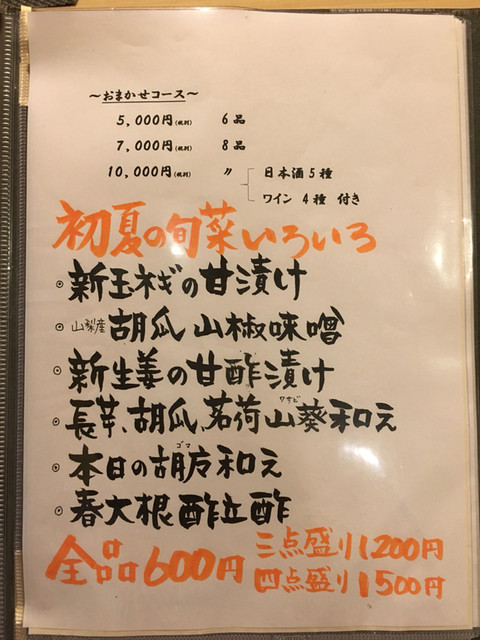 ～おまかせコース～
5,000円(税別) 6品
7,000円(税別) 8品
10,000円(税別) 〃 日本酒5種
ワイン 4種 付き
初夏の旬菜いろいろ
◎新玉ネギの甘漬け
◎山梨産 胡瓜 山椒味噌
◎新生姜の甘酢漬け
◎長芋、胡瓜、茗荷 山葵和え ワサビ
◎本日の胡麻和え ゴマ
◎春大根 酢立酢
全品600円
三点盛り1200円
四点盛り1500円